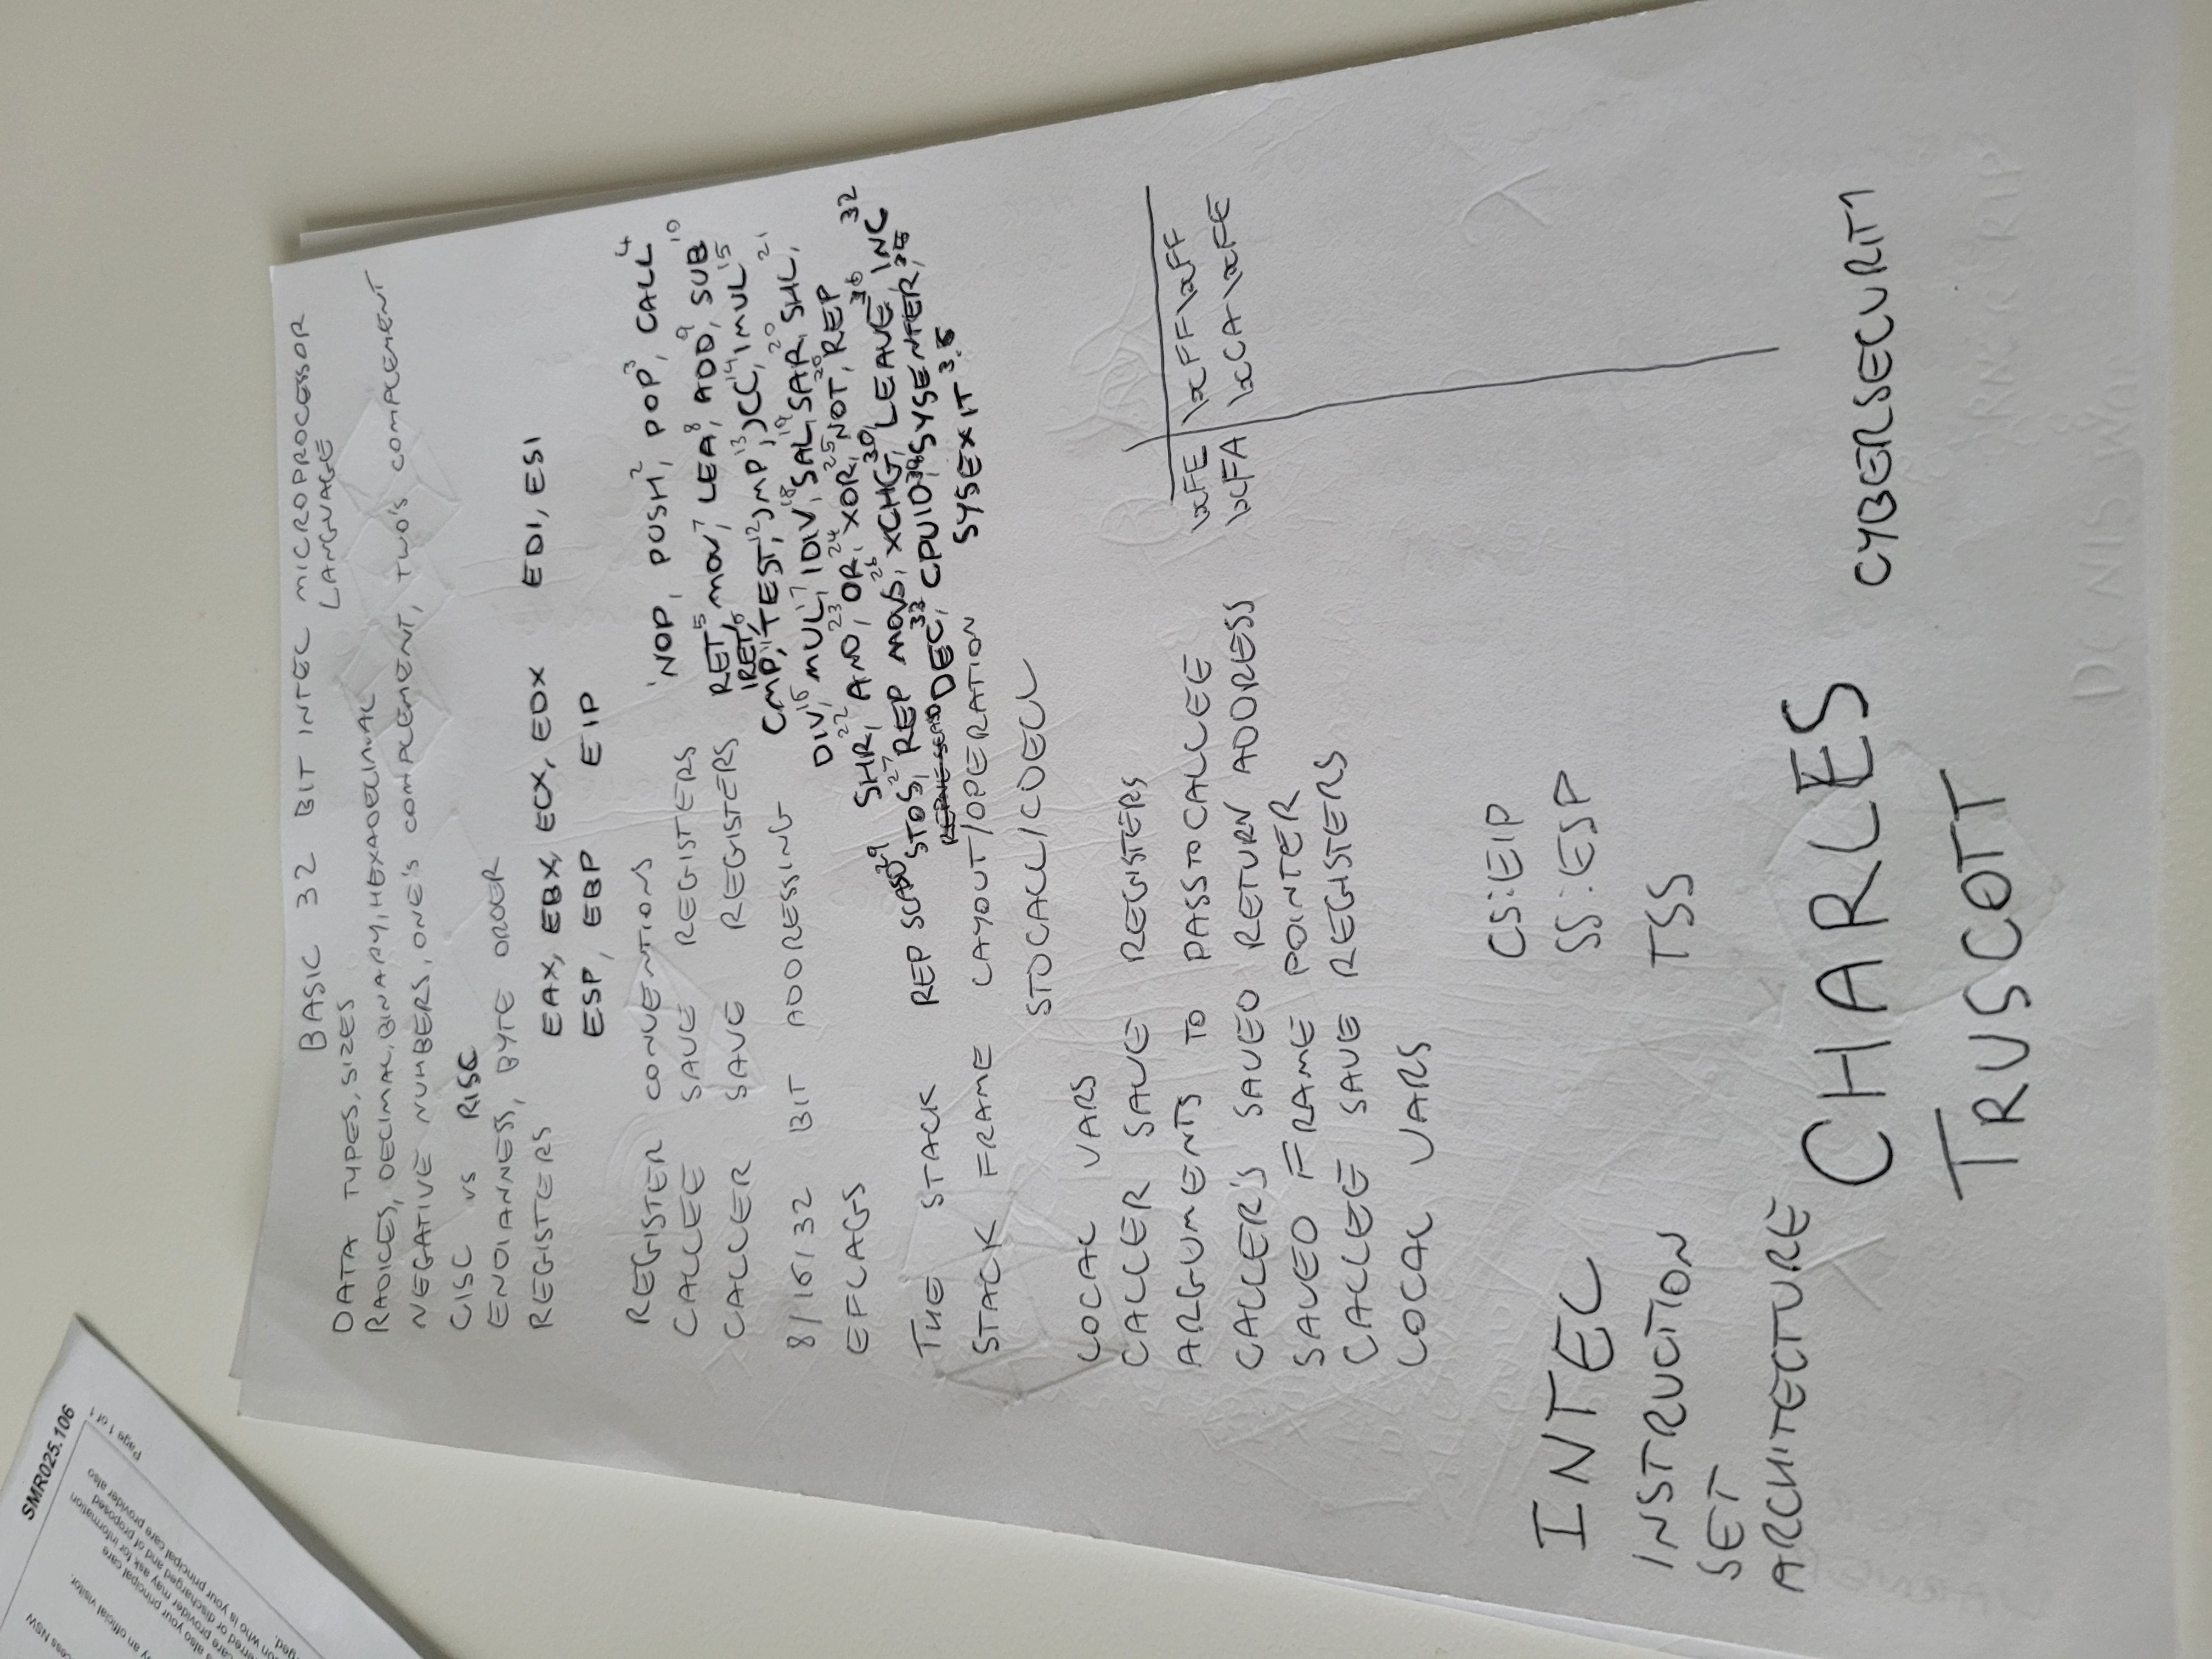 SMR025.106
Page 1 of 1
cess NSW
y an official visitor.
also your principal care
care provider may ask for information
erred or discharged and of proposed
on who is your principal care provider also
ged.
BASIC 32 BIT INTEL MICROPROCESSOR
LANGUAGE
DATA TYPES, SIZES
RADICES, DECIMAL, BINARY, HEXADECIMAL
NEGATIVE NUMBERS, ONE'S COMPLEMENT, TWO'S COMPLEMENT
CISC vs RISC
ENDIANNESS, BYTE ORDER
REGISTERS EAX, EBX, ECX, EDX EDI, ESI
ESP, EBP EIP
REGISTER CONVENTIONS
CALLEE SAVE REGISTERS
CALLER SAVE REGISTERS
8/16/32 BIT ADDRESSING
EFLAGS
¹NOP, PUSH², POP³, CALL⁴
RET⁵, MOV⁷, LEA⁸, ADD⁹, SUB¹⁰
IRET⁶
CMP,¹¹ TEST,¹² JMP,¹³ JCC,¹⁴ IMUL¹⁵
DIV,¹⁶ MUL,¹⁷ IDIV,¹⁸ SAL,¹⁹ SAR,²⁰ SHL,²¹
SHR,²² AND,²³ OR,²⁴ XOR,²⁵ NOT,²⁶ REP
STOS,²⁷ REP MOVS,²⁸ XCHG,³⁰ LEAVE,³⁰ INC³²
REP SCASD²⁹
REPNE SCASD DEC,³³ CPUID,³⁴ SYSENTER,³⁵
SYSEXIT³·⁵
THE STACK
STACK FRAME LAYOUT/OPERATION
STDCALL/CDECL
LOCAL VARS
CALLER SAVE REGISTERS
ARGUMENTS TO PASS TO CALLEE
CALLER'S SAVED RETURN ADDRESS
SAVED FRAME POINTER
CALLEE SAVE REGISTERS
LOCAL VARS
\xFE \xFF\xFF
\xFA \xCA\xFE
CS:EIP
SS:ESP
TSS
INTEL
INSTRUCTION
SET
ARCHITECTURE
CHARLES
TRUSCOTT
CYBERSECURITY